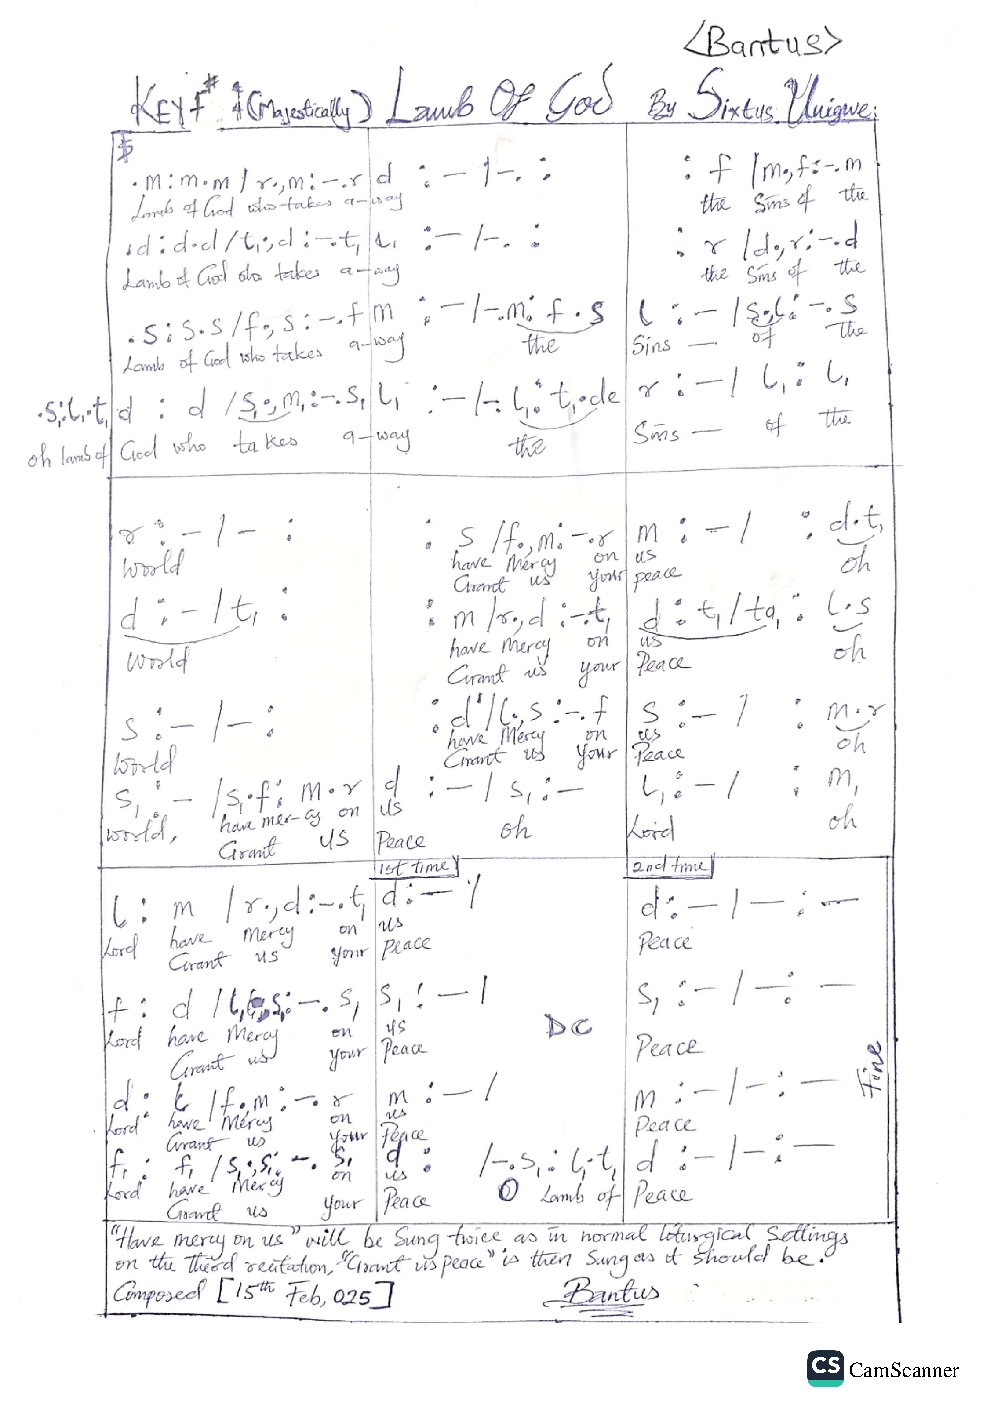 <Bantus>
KEY F# (Majestically) Lamb Of God By Sixtus Unigwe.
.m : m.m / r.,m : -.r d : - / -. : : f / m.,f : -.m
Lamb of God who takes a-way the Sins of the
.d : d.d / t₁.,d : -.t₁ l₁ : - / -. : : r / d.,r : -.d
Lamb of God who takes a-way the Sins of the
.s : s.s / f.,s : -.f m : - / -.m : f.s l : - / s.,l : -.s
Lamb of God who takes a-way the Sins — of the
.s₁ : l₁.t₁ d : d / s₁.,m₁ : -.s₁ l₁ : - / -.l₁ : t₁.de r : - / l₁ : l₁
oh lamb of God who takes a-way the Sins — of the
r : - / - : : s / f.,m : -.r m : - / : d.t₁
World have Mercy on us oh
Grant us your peace
d : - / t₁ : : m / r.,d : -.t₁ d : t₁ / ta₁ : l.s
World have Mercy on us oh
Grant us your Peace
s : - / - : : d' / l.,s : -.f s : - / : m.r
World have Mercy on us oh
Grant us your Peace
s₁ : - / s₁.f : m.r d : - / s₁ : - l₁ : - / : m₁
World, have mer-cy on us oh Lord oh
Grant us Peace
1st time 2nd time
l : m / r.,d : -.t₁ d : - / d : - / - : -
Lord have Mercy on us Peace
Grant us your Peace
f : d / s₁ : -.s₁ s₁ : - / s₁ : - / - : -
Lord have Mercy on us DC
Grant us your Peace Peace
d : l / f.,m : -.r m : - / m : - / - : -
Lord have Mercy on us Peace
Grant us your Peace Fine
f₁ : f₁ / s₁.,s₁ : -.s₁ d : / -.s₁ : l₁.t₁ d : - / - : -
Lord have Mercy on us O Lamb of Peace
Grant us your Peace
"Have mercy on us" will be Sung twice as in normal liturgical Settings
on the third recitation, "Grant us peace" is then Sung as it should be.
Composed [15th Feb, 025] Bantus
CS CamScanner